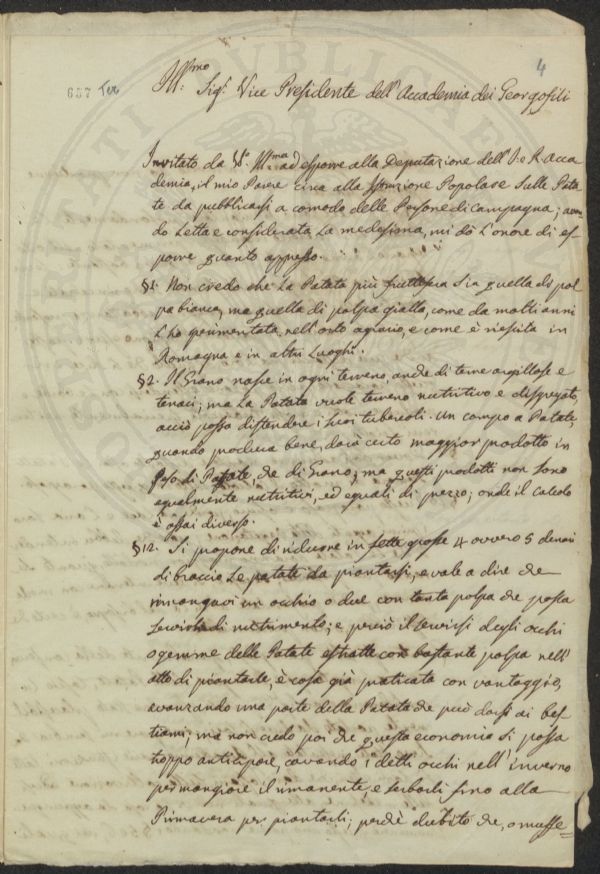 4
687 Ter
Ill:mo
Sig:r Vice Presidente dell'Accademia dei Georgofili
Invitato da VS. Ill:ma ad esporre alla Deputazione dell'I. e R. Acca
demia, il mio Parere circa alla Istruzione Popolare sulle Pata
te da pubblicarsi a comodo delle Persone di campagna; aven
do Letta e considerata La medesima, mi dò L'onore di es
porre quanto appresso.
§1. Non credo che La Patata più fruttifera sia quella di pol
pa bianca, ma quella di polpa gialla, come da molti anni
L'ho sperimentata, nell'orto agrario, e come è riescita in
Romagna e in altri Luoghi.
§2. Il Grano nasce in ogni terreno, anche di terre argillose e
tenaci; ma La Patata vuole terreno nutritivo e disgregato,
acciò possa distendere i suoi tubercoli. Un campo a Patate,
quando produca bene, darà certo maggior prodotto in
Peso di Patate, che di Grano; ma questi prodotti non sono
egualmente nutritivi, ed eguali di prezzo; onde il calcolo
è assai diverso.
§12. Si propone di ridurre in fette grosse 4 ovvero 5 denari
di braccio Le patate da piantarsi, e vale a dire che
rimangavi un occhio o due con tanta polpa che possa
servirli di nutrimento; e perciò il servirsi degli occhi
o gemme delle Patate estratte con bastante polpa nell'
atto di piantarle, è cosa già praticata con vantaggio,
avanzando una parte della Patata che può darsi ai bes
tiami; ma non credo poi che questa economia si possa
troppo anticipare, cavando i detti occhi nell'inverno
per mangiare il rimanente, e serbarli fino alla
Primavera per piantarli; perchè dubito che, o muffe=